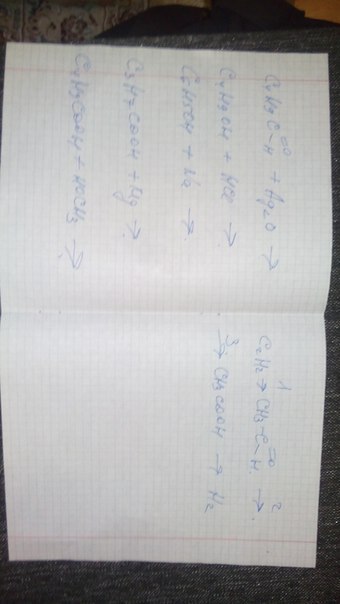 C₄H₉C(=O)-H + Ag₂O →
C₄H₉OH + HCl →
C₆H₅OH + Na →
C₃H₇COOH + Mg →
C₄H₉COOH + HOCH₃ →
C₂H₂ →¹ CH₃-C(=O)-H →²
→³ CH₃COOH → H₂